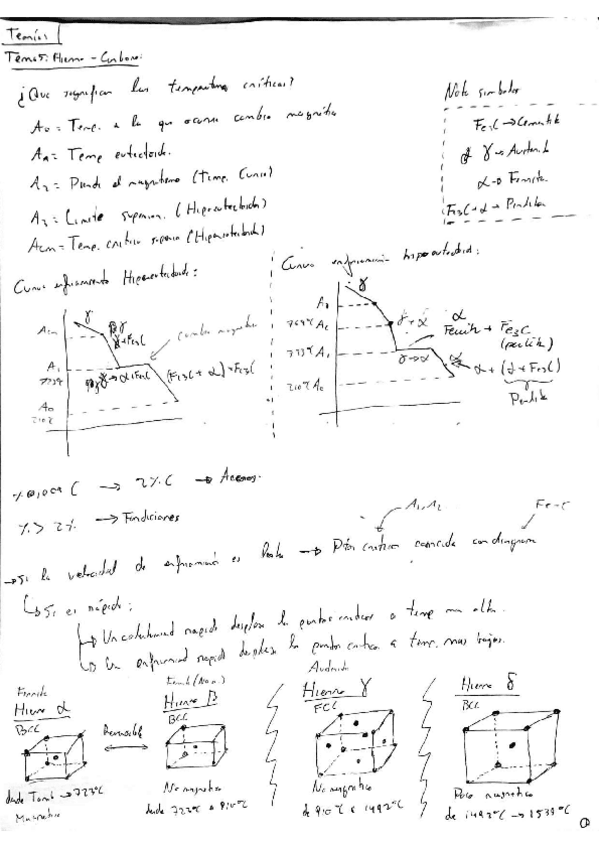 Teoría
Tema 5: Hierro - Carbono:
¿Que significan las temperaturas críticas?
A0 = Temp. a la que ocurre cambio magnético
A1 = Temp eutectoide.
A2 = Punto el magnetismo (Temp. Curie)
A3 = Limite superior. (Hipoeutectoide)
Acm = Temp. crítica superior (Hipereutectoide)
Nota simbolos
Fe3C → Cementita
γ → Austenita
α → Ferrita
Fe3C + α → Perlita
Curva enfriamiento Hipereutectoide:
γ
Acm
γ
γ+Fe3C
cambio magnetico
A1
γ → α+Fe3C
(Fe3C + α) + Fe3C
A0
210ºC
Curva enfriamiento hipoeutectoide:
γ
A3
γ + α
α
769ºC A2
Ferrita + Fe3C
(perlita)
A1
γ → α
α + (α + Fe3C)
Perlita
210ºC A0
C → 2%C → Aceros.
%> 2% → Fundiciones
A1, A2
Fe-C
→ Si la velocidad de enfriamiento es lenta → Ptos criticos coincide con diagrama
→ Si es rápida:
→ Un calentamiento rapido desplaza los puntos criticos a temp mas alta.
→ Un enfriamiento rapido desplaza los puntos criticos a temp. mas bajas.
Ferrita
Hierro α
BCC
Reversible
desde Tamb → 723ºC
Magnetico
Hierro β
BCC
No magnetico
desde 723ºC a 910ºC
Austenita
Hierro γ
FCC
No magnetico
de 910ºC a 1492ºC
Hierro δ
BCC
Poco magnetico
de 1492ºC → 1539ºC
1